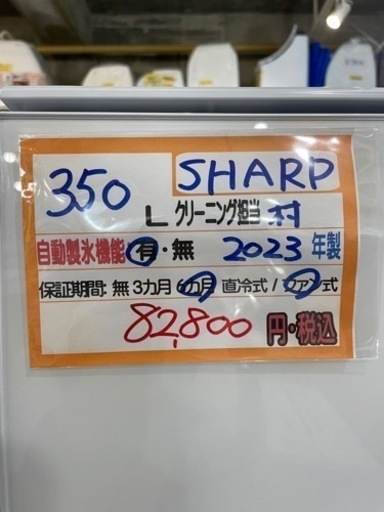 350 L SHARP
クリーニング担当 村
自動製氷機能 有・無 2023 年製
保証期間: 無 3カ月 6カ月 直冷式 / ファン式
82,800 円・税込